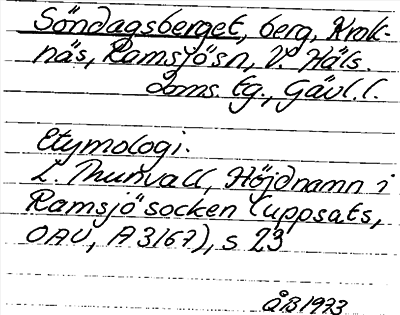 Söndagsberget, berg, Krok-
näs, Ramsjö sn, V. Häls.
doms. tg., Gävl. l.
Etymologi.
L. Thunvall, Höjdnamn i
Ramsjö socken (uppsats,
OAU, A 3167), s 23
ÅB 1973